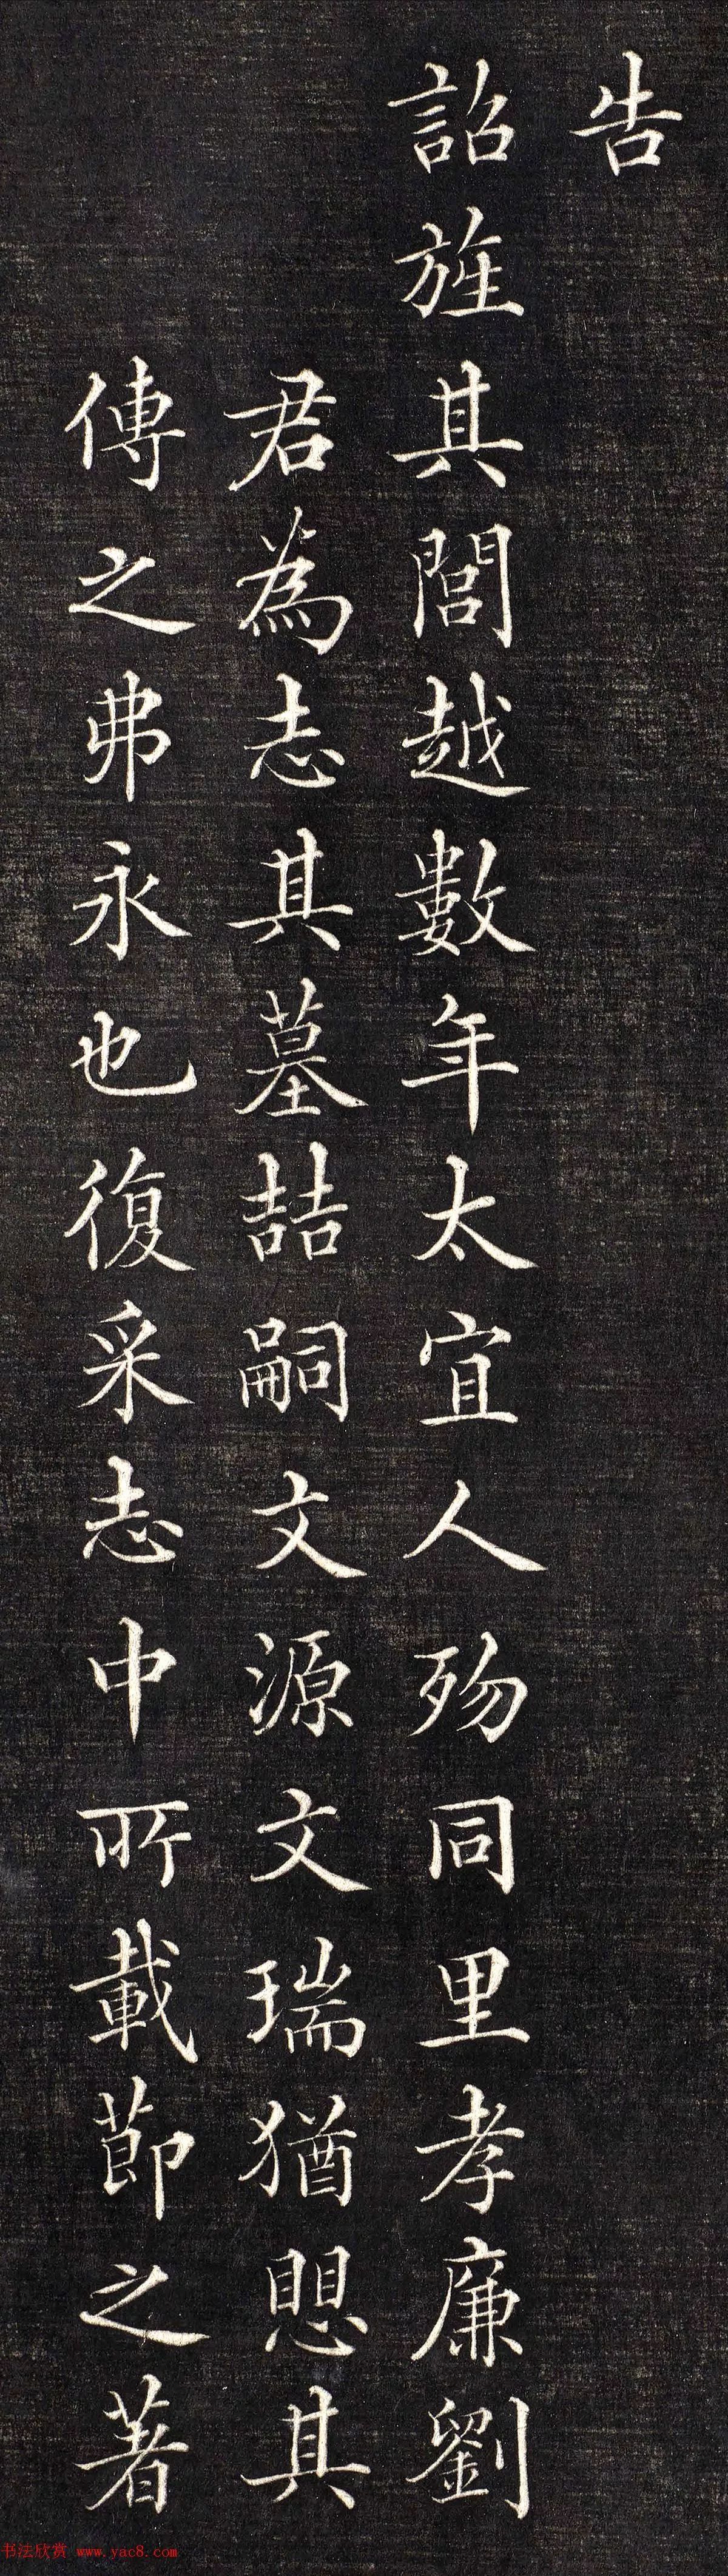 告
詔旌其閭越數年太宜人歿同里孝廉劉
君為志其墓喆嗣文源文瑞猶思其
傳之弗永也復采志中所載節之著
书法欣赏 www.yac8.com